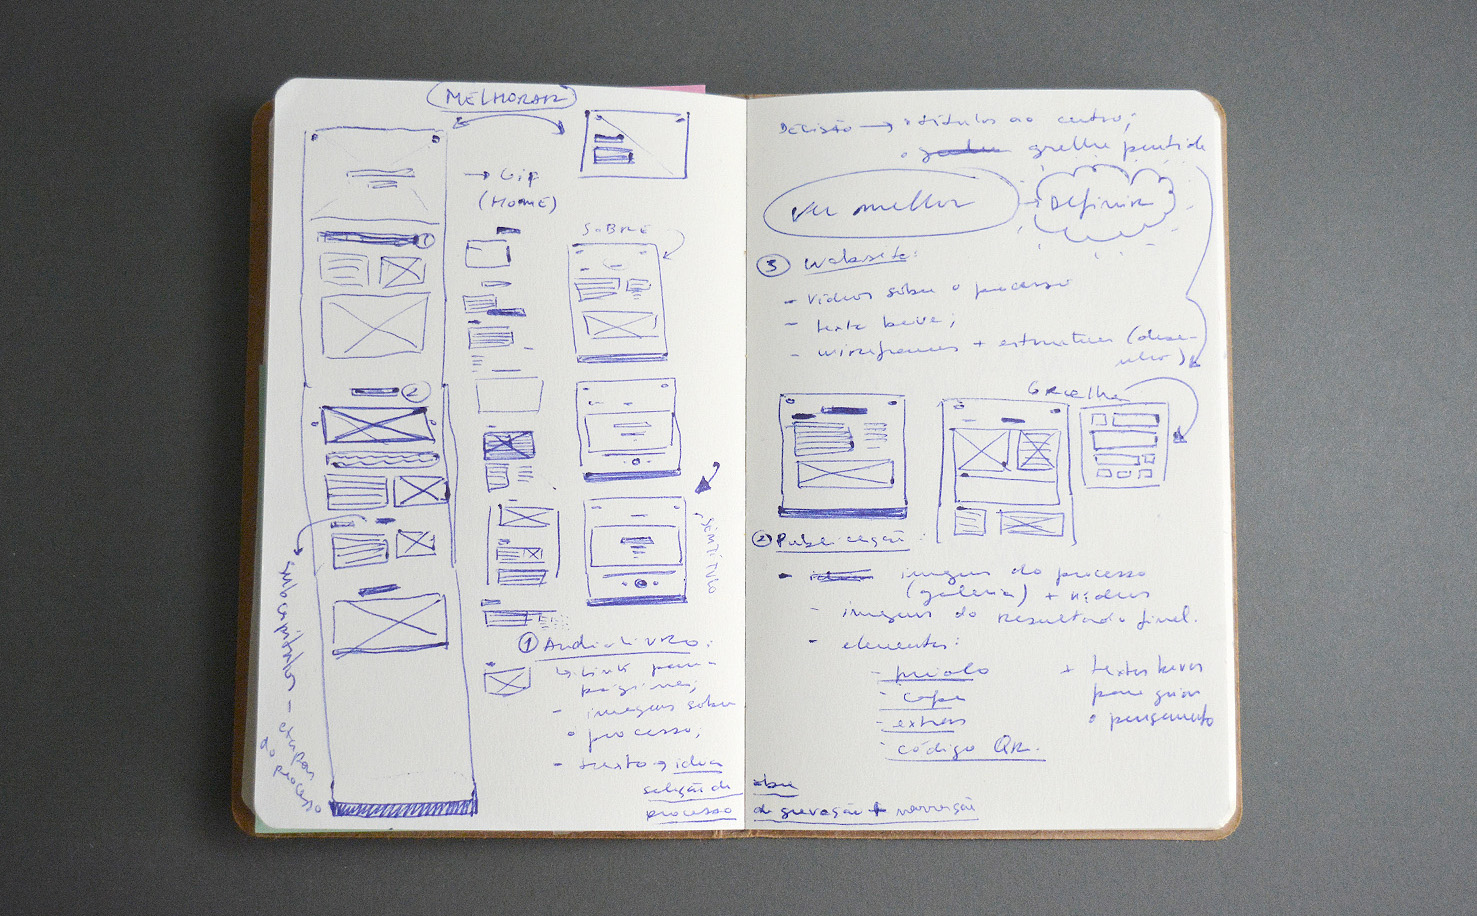 MELHORAR
→ GIF
(HOME)
SOBRE
2
SEM TÍTULO
etapas
do processo
① Audiolivro:
↳ Link para
páginas;
- imagens sobre
o processo;
- texto → ideia
seleção da obra
processo de gravação + narração
DECISÃO → títulos ao centro;
grelha partida
Ver melhor → Definir
③ Website:
- vídeos sobre o processo
- texto breve;
- wireframes + estrutura (dese-
nho)
Grelha
② Publicação:
imagens do processo
(galeria) + vídeos
- imagens do resultado final.
- elementos:
- miolo
- capa
- extras
- código QR.
+ textos breves
para guiar
o pensamento